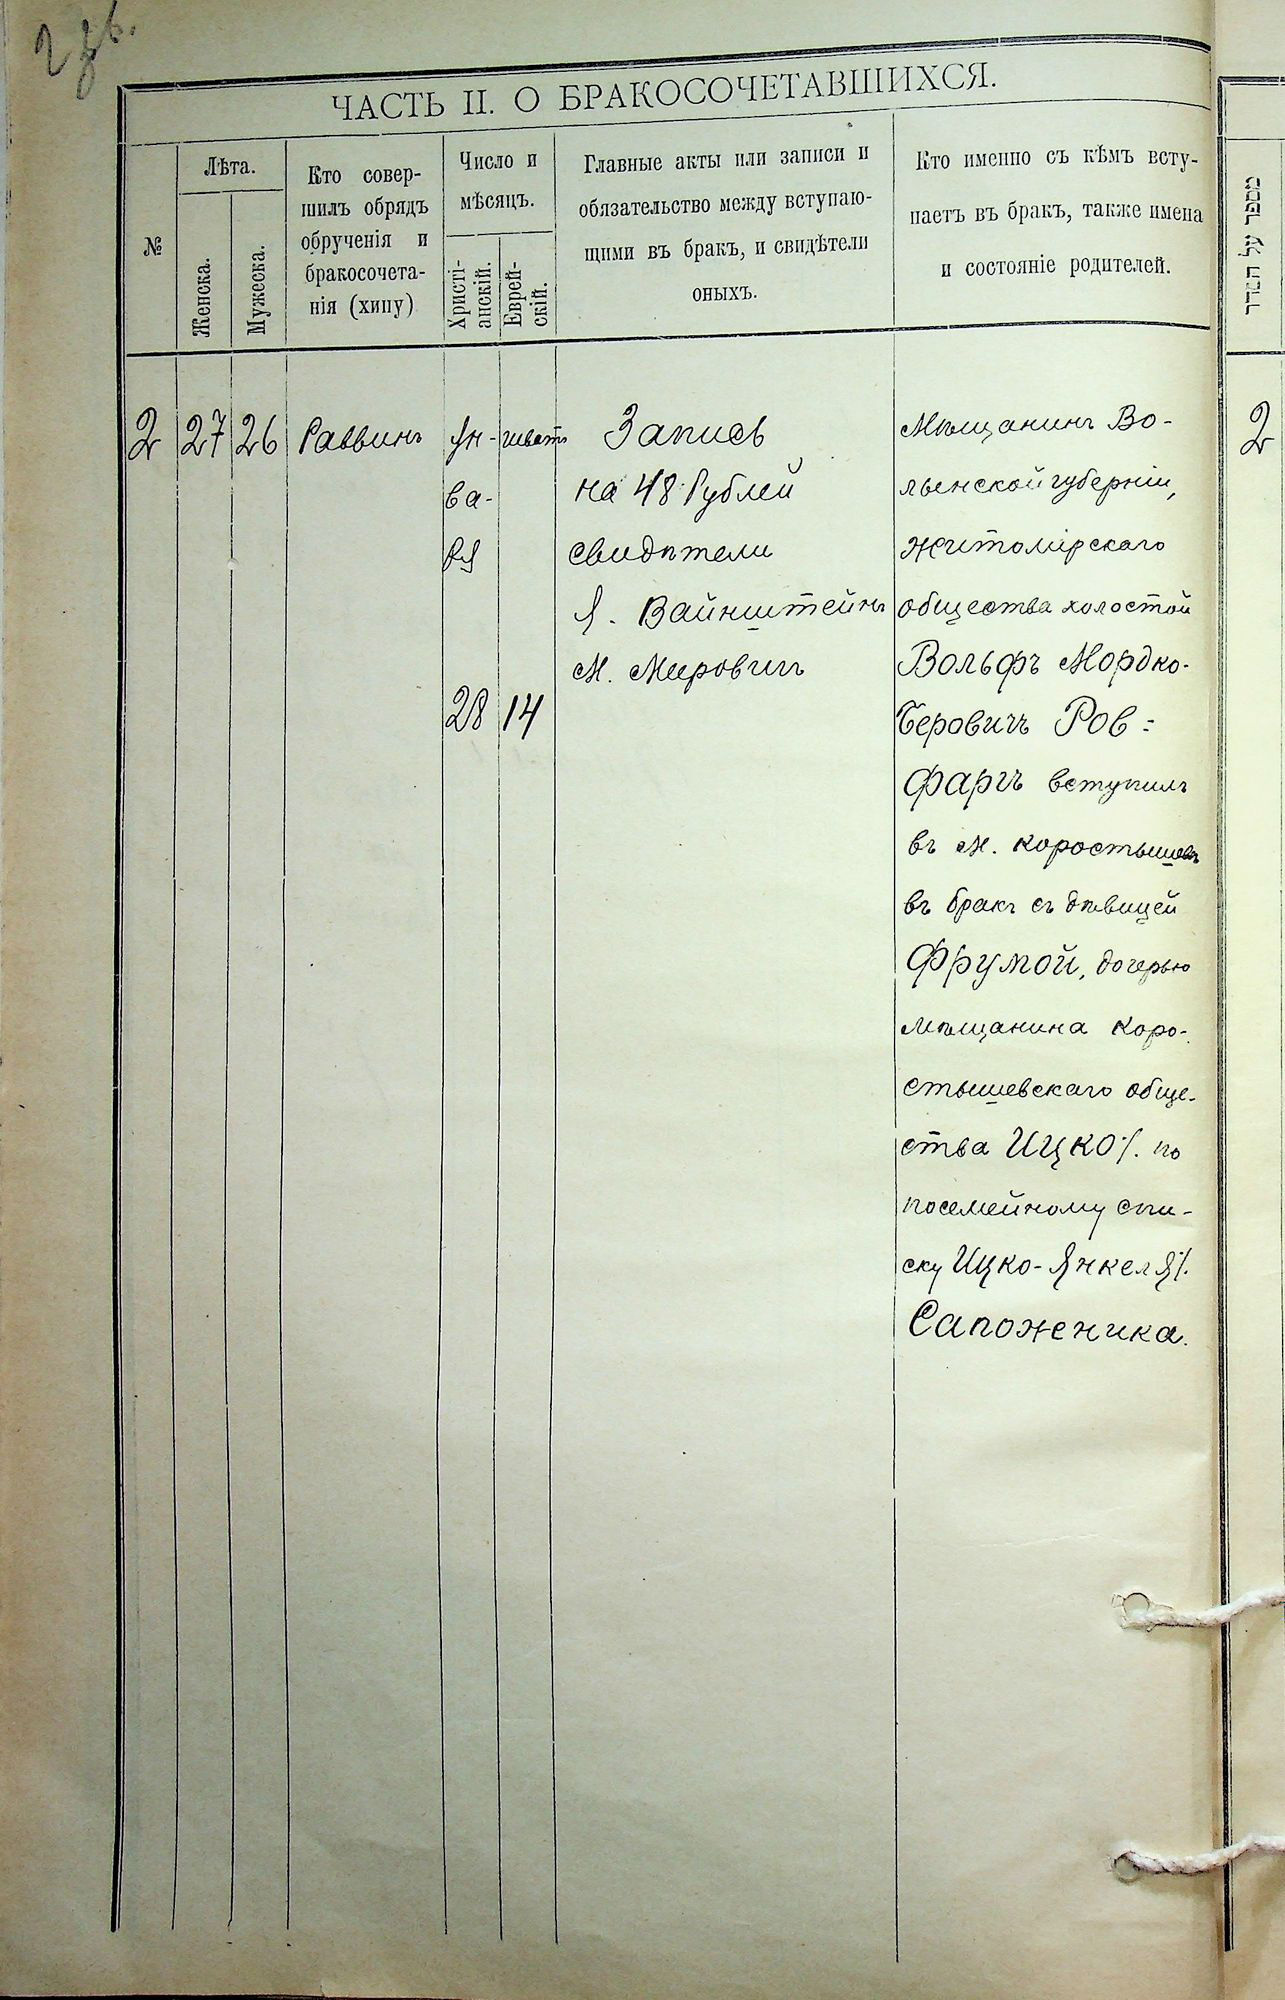 2 об.
ЧАСТЬ II. О БРАКОСОЧЕТАВШИХСЯ.
№
Лѣта.
Женска.
Мужеска.
Кто совер-
шилъ обрядъ
обрученія и
бракосочета-
нія (хипу)
Число и
мѣсяцъ.
Христі-
анскій.
Еврей-
скій.
Главные акты или записи и
обязательство между вступаю-
щими въ бракъ, и свидѣтели
оныхъ.
Кто именно съ кѣмъ всту-
паетъ въ бракъ, также имена
и состояніе родителей.
מספר על הסדר
2
27
26
Раввинъ
Ян-
ва-
ря
28
шватъ
14
Запись
на 48 Рублей
свидѣтели
Я. Вайнштейнъ
М. Мировичъ
Мѣщанинъ Во-
лынской губерніи,
Житомірскаго
общества холостой
Вольфъ Мордко-
Беровичъ Ров-
Фаргъ вступилъ
въ м. Коростышевѣ
въ бракъ съ дѣвицей
Фрумой, дочерью
мѣщанина Коро-
стышевскаго обще-
ства Ицко ·/. по
посемейному спи-
ску Ицко-Янкеля ·/.
Сапожника.
2